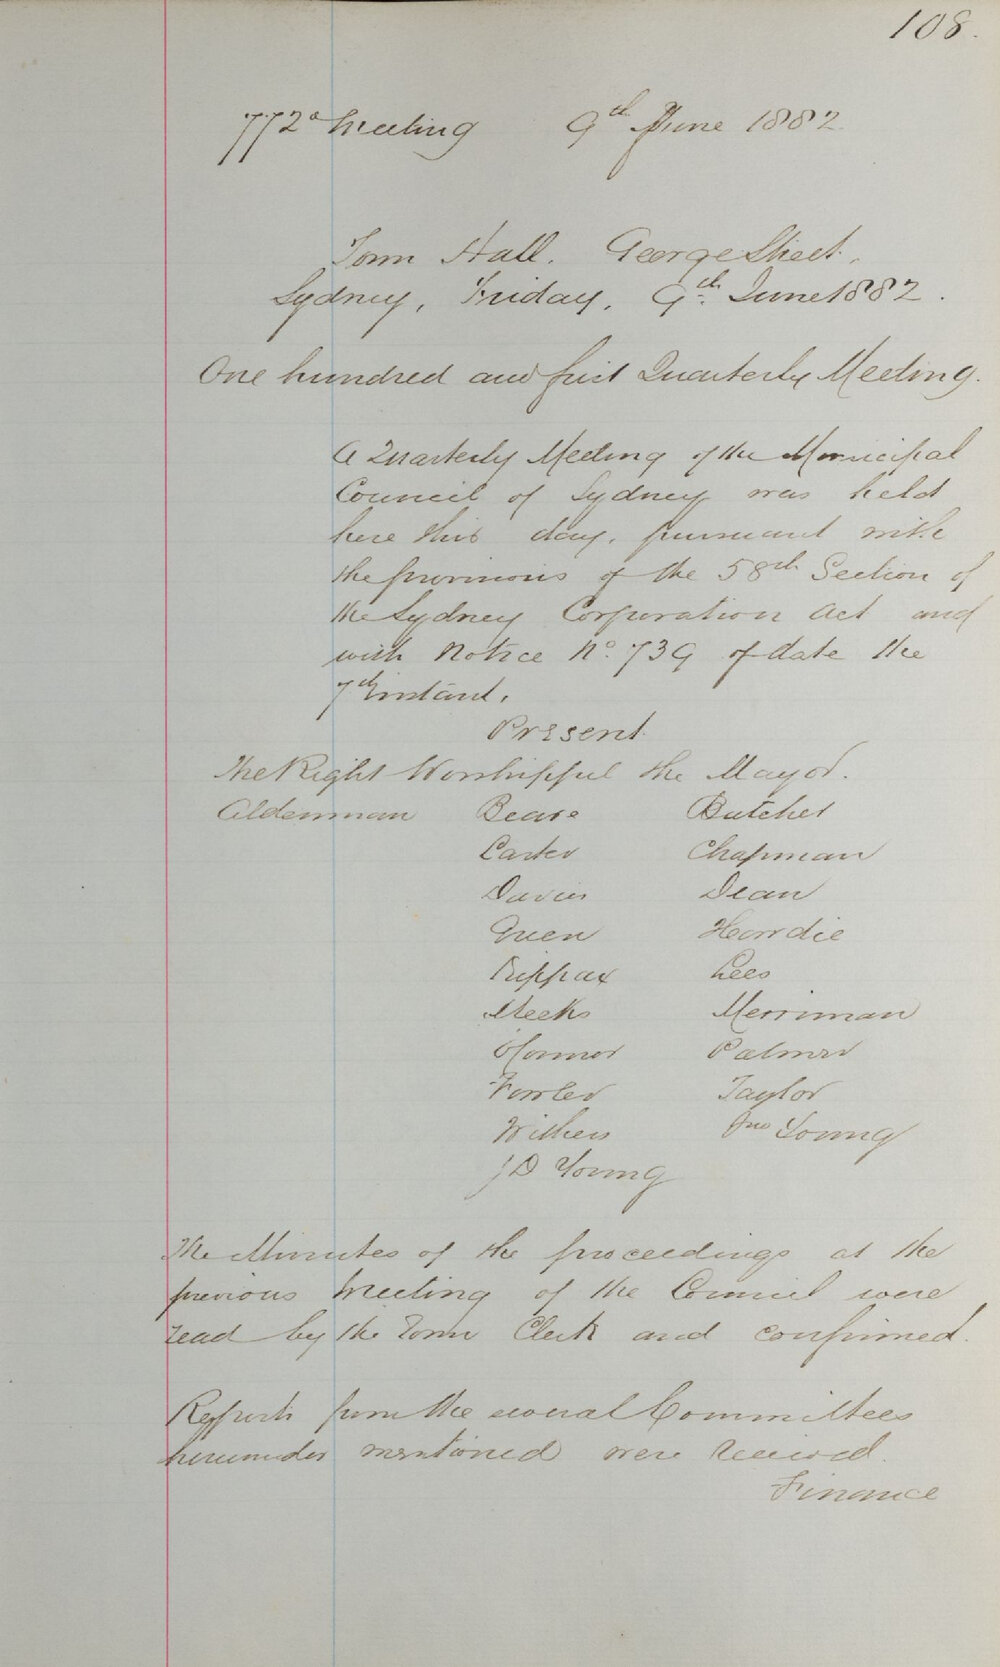 108.
772d Meeting 9th June 1882
Town Hall. George Street.
Sydney, Friday, 9th June 1882.
One hundred and first Quarterly Meeting.
A Quarterly Meeting of the Municipal
Council of Sydney was held
here this day, pursuant with
the provisions of the 58th Section of
the Sydney Corporation Act and
with Notice No. 739 of date the
7th instant.
Present
The Right Worshipful the Mayor.
Aldermman Beare Butcher
Carter Chapman
Davies Dean
Green Hordie
Kippax Lees
Meeks Merriman
O'Connor Palmer
Fowler Taylor
Withers Jno Young
J D Young
The Minutes of the proceedings at the
previous Meeting of the Council were
read by the Town Clerk and confirmed.
Reports from the several Committees
hereunder mentioned were received.
Finance